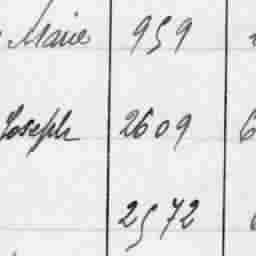 Marie 959
Joseph 2609 6
2572